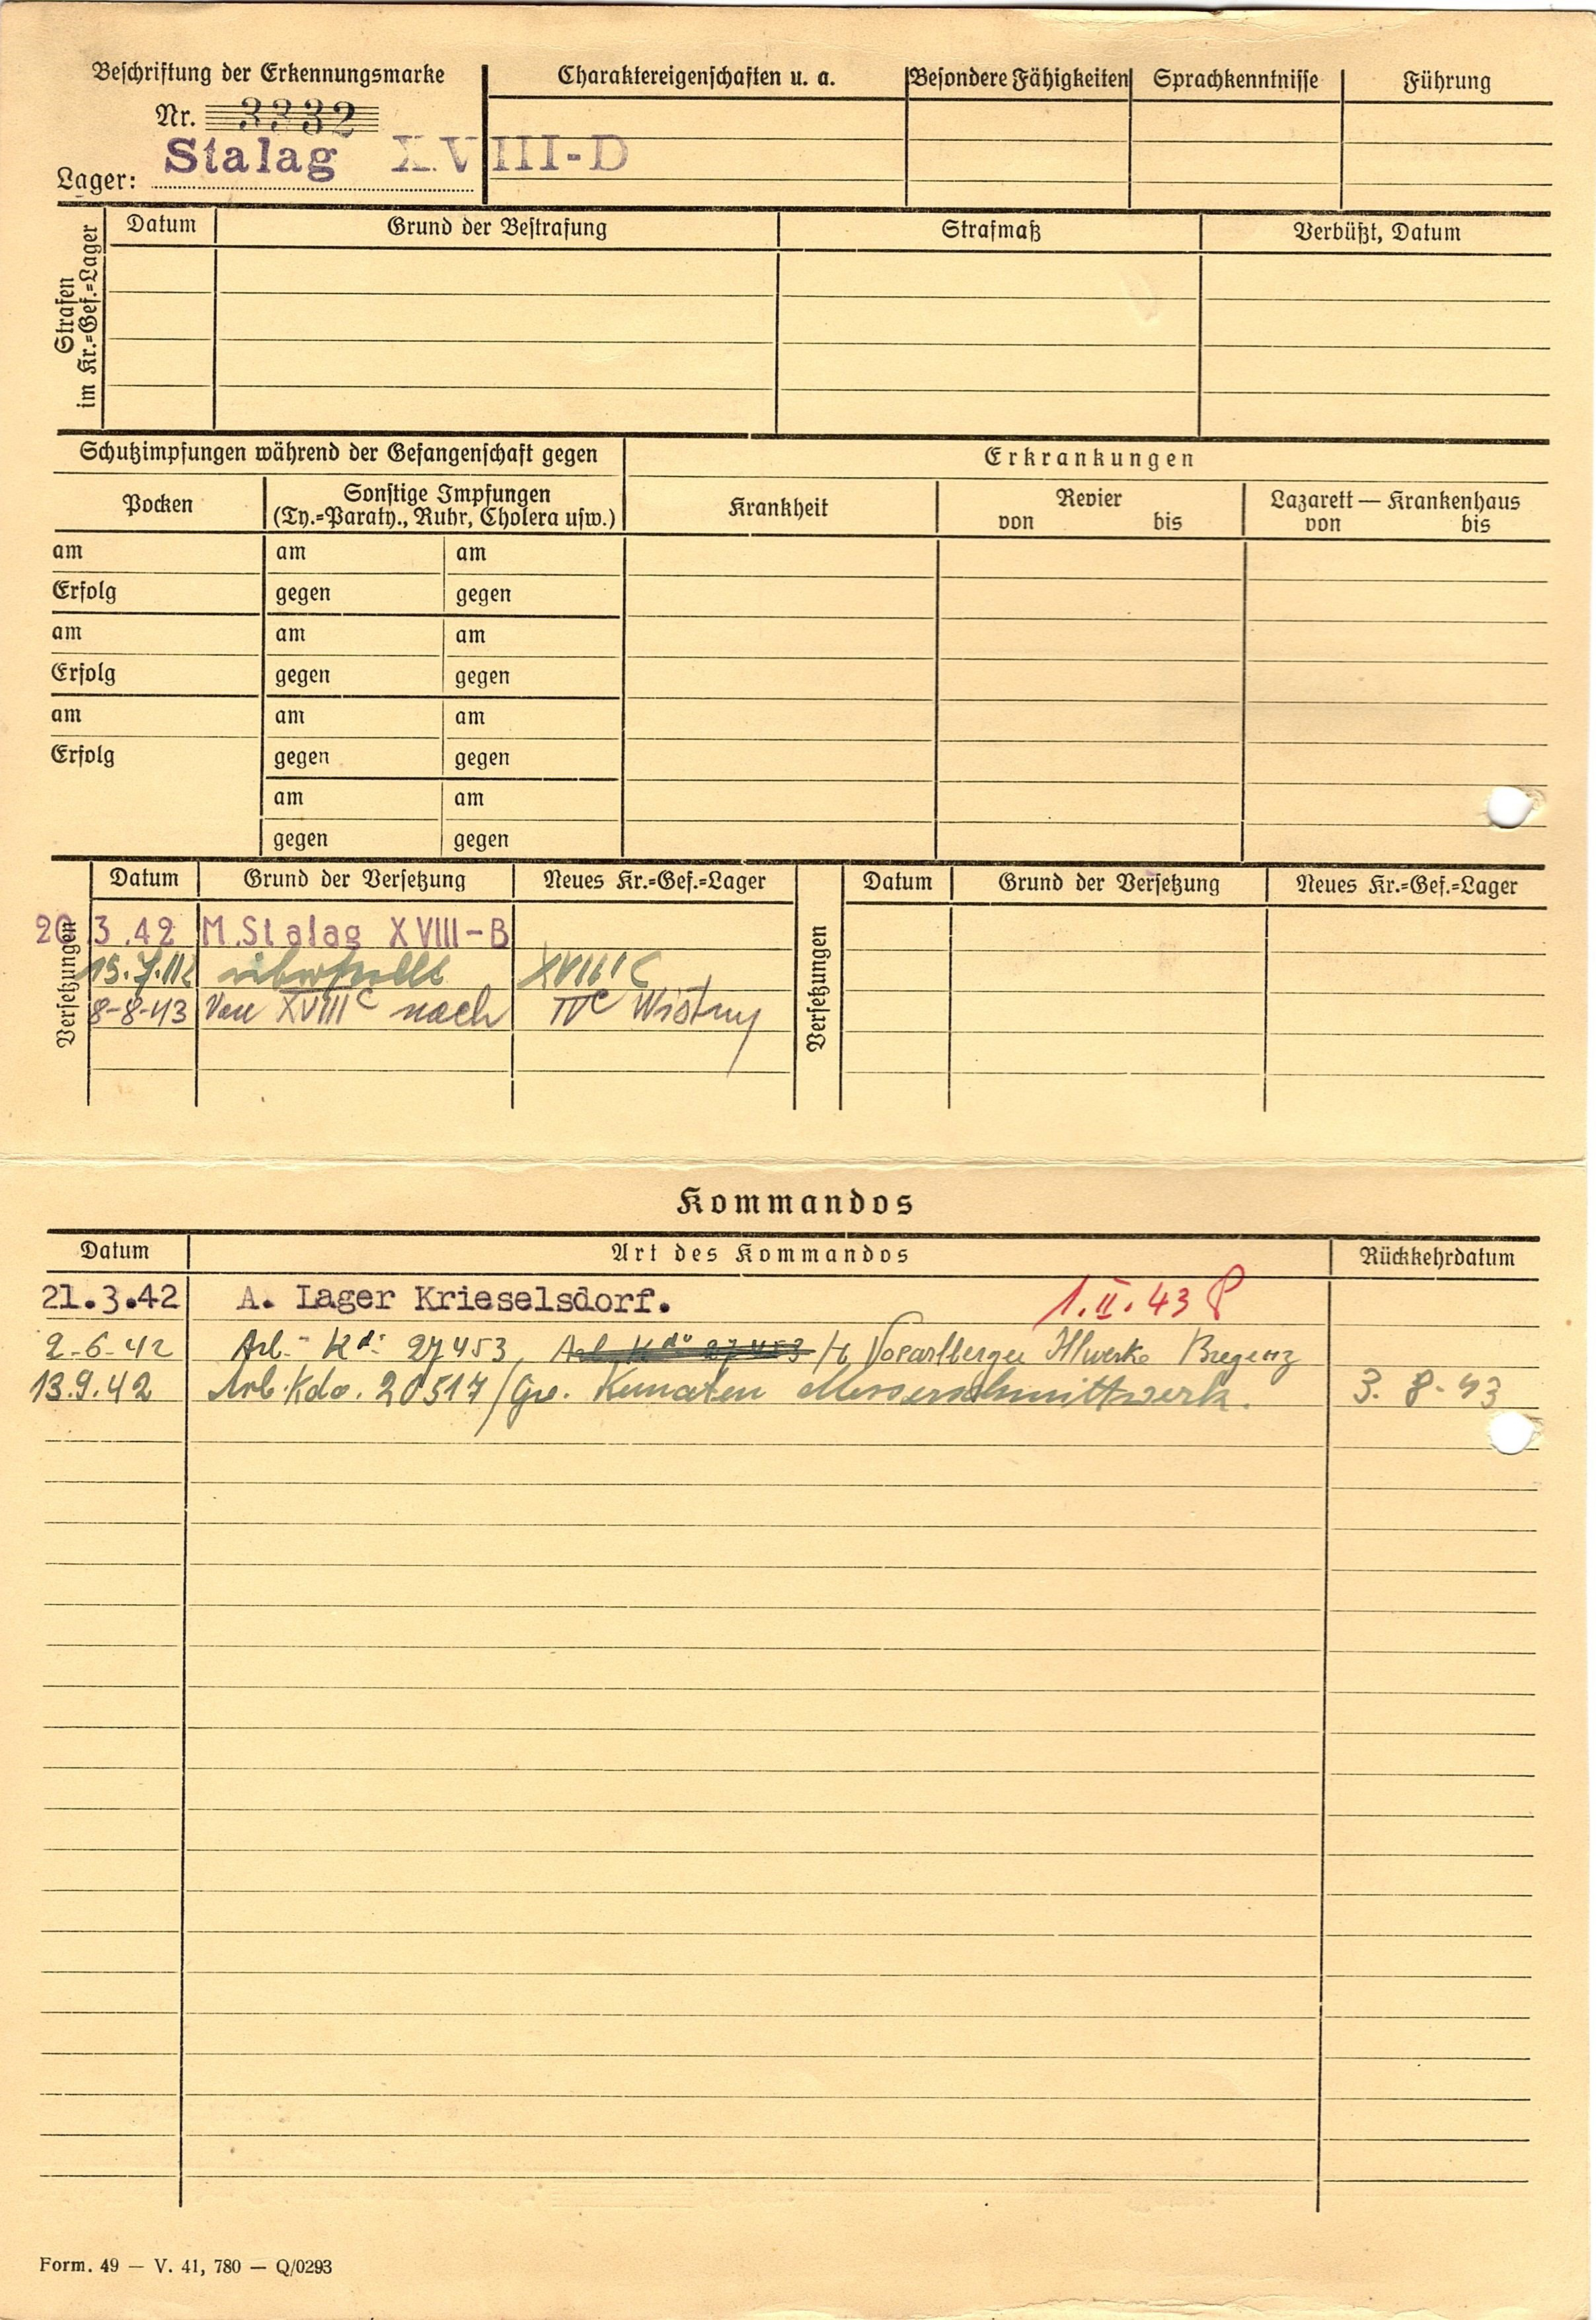 Beschriftung der Erkennungsmarke
Nr. 3332
Lager: Stalag XVIII-D
Charaktereigenschaften u. a.
Besondere Fähigkeiten
Sprachkenntnisse
Führung
Strafen
im Kr.=Gef.=Lager
Datum
Grund der Bestrafung
Strafmaß
Verbüßt, Datum
Schutzimpfungen während der Gefangenschaft gegen
Erkrankungen
Pocken
Sonstige Impfungen
(Ty.=Paraty., Ruhr, Cholera usw.)
Krankheit
Revier
von bis
Lazarett — Krankenhaus
von bis
am am am
Erfolg gegen gegen
am am am
Erfolg gegen gegen
am am am
Erfolg gegen gegen
am am
gegen gegen
Versetzungen
Datum Grund der Versetzung Neues Kr.=Gef.=Lager
20.3.42 M.Stalag XVIII-B
15.7.42 überstellt XVIII C
8-8-43 Von XVIII C nach IV C Wistny
Versetzungen
Datum Grund der Versetzung Neues Kr.=Gef.=Lager
Kommandos
Datum Art des Kommandos Rückkehrdatum
21.3.42 A. Lager Krieselsdorf. 1.II.43
2-6-42 Arb.- Kdo 27453, Arb. Kdo 27453 Vorarlberger Illwerke Bregenz
13.9.42 Arb.Kdo. 20517/Gw. Kematen Messerschmittwerk. 3. 8-43
Form. 49 — V. 41, 780 — Q/0293